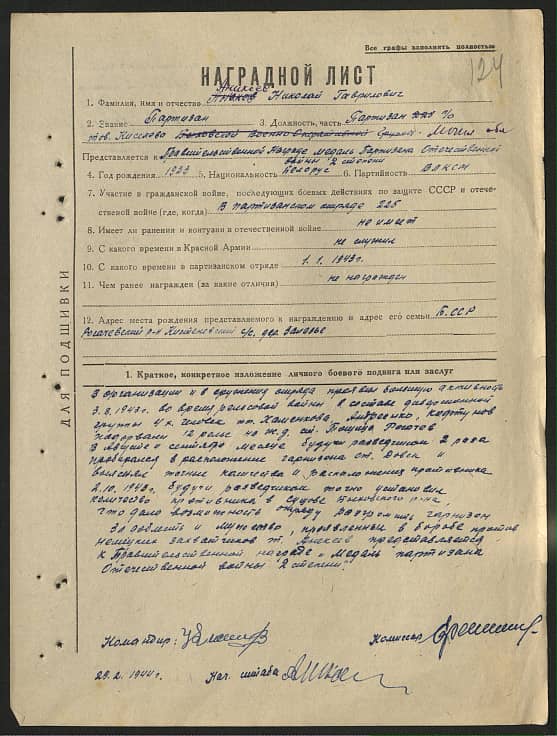 Все графы заполнять полностью
124
НАГРАДНОЙ ЛИСТ
Алексеев
1. Фамилия, имя и отчество Николай Гаврилович
2. Звание Партизан 3. Должность, часть Партизан п/о
тов. Кислова Военно-Оперативной Могил. обл
Представляется к Правительственной Награде медаль Партизана Отечественной
войны 2 степени
4. Год рождения 1923 5. Национальность Белорус 6. Партийность ВЛКСМ
7. Участие в гражданской войне, последующих боевых действиях по защите СССР и отече-
ственной войне (где, когда) В партизанском отряде 225
8. Имеет ли ранения и контузии в отечественной войне не имеет
9. С какого времени в Красной Армии не служил
10. С какого времени в партизанском отряде 1.1.1943г.
11. Чем ранее награжден (за какие отличия) не награжден
12. Адрес места рождения представляемого к награждению и адрес его семьи БССР
Рогачевский р-н с/с. дер. Заполье
ДЛЯ ПОДШИВКИ
1. Краткое, конкретное изложение личного боевого подвига или заслуг
В организации и в оружения отряда проявил большую активность
3.8.1943г. во время рельсовой войны в составе диверсионной
группы 4х человек тт. Хаменкова, Андреенко, Кафтунов
подорвали 12 рельс на ж.д. ст. Тощица
В Августе и сентябре месяце будучи разведчиком 2 раза
пробирался в расположение гарнизона ст. Довск и
выяснял точние качества и расположения противника
2.10.1943г. будучи разведчиком точно установил
количество противника в Быховского р-на,
что дало возможность отряду разгромить гарнизон
За доблесть и мужество, проявленный в борьбе против
немецких захватчиков т. Алексеев представляется
к Правительственной награде "Медаль партизана
Отечественной войны 2 степени"
Командир: Комиссар
29.2.1944г. Нач. штаба